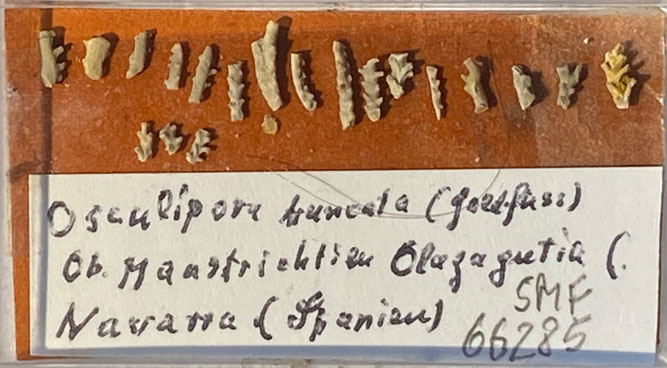 Osculipora truncata (Goldfuss)
Ob. Maastrichtien Olazagutia (
Navarra (Spanien)
SMF
66285